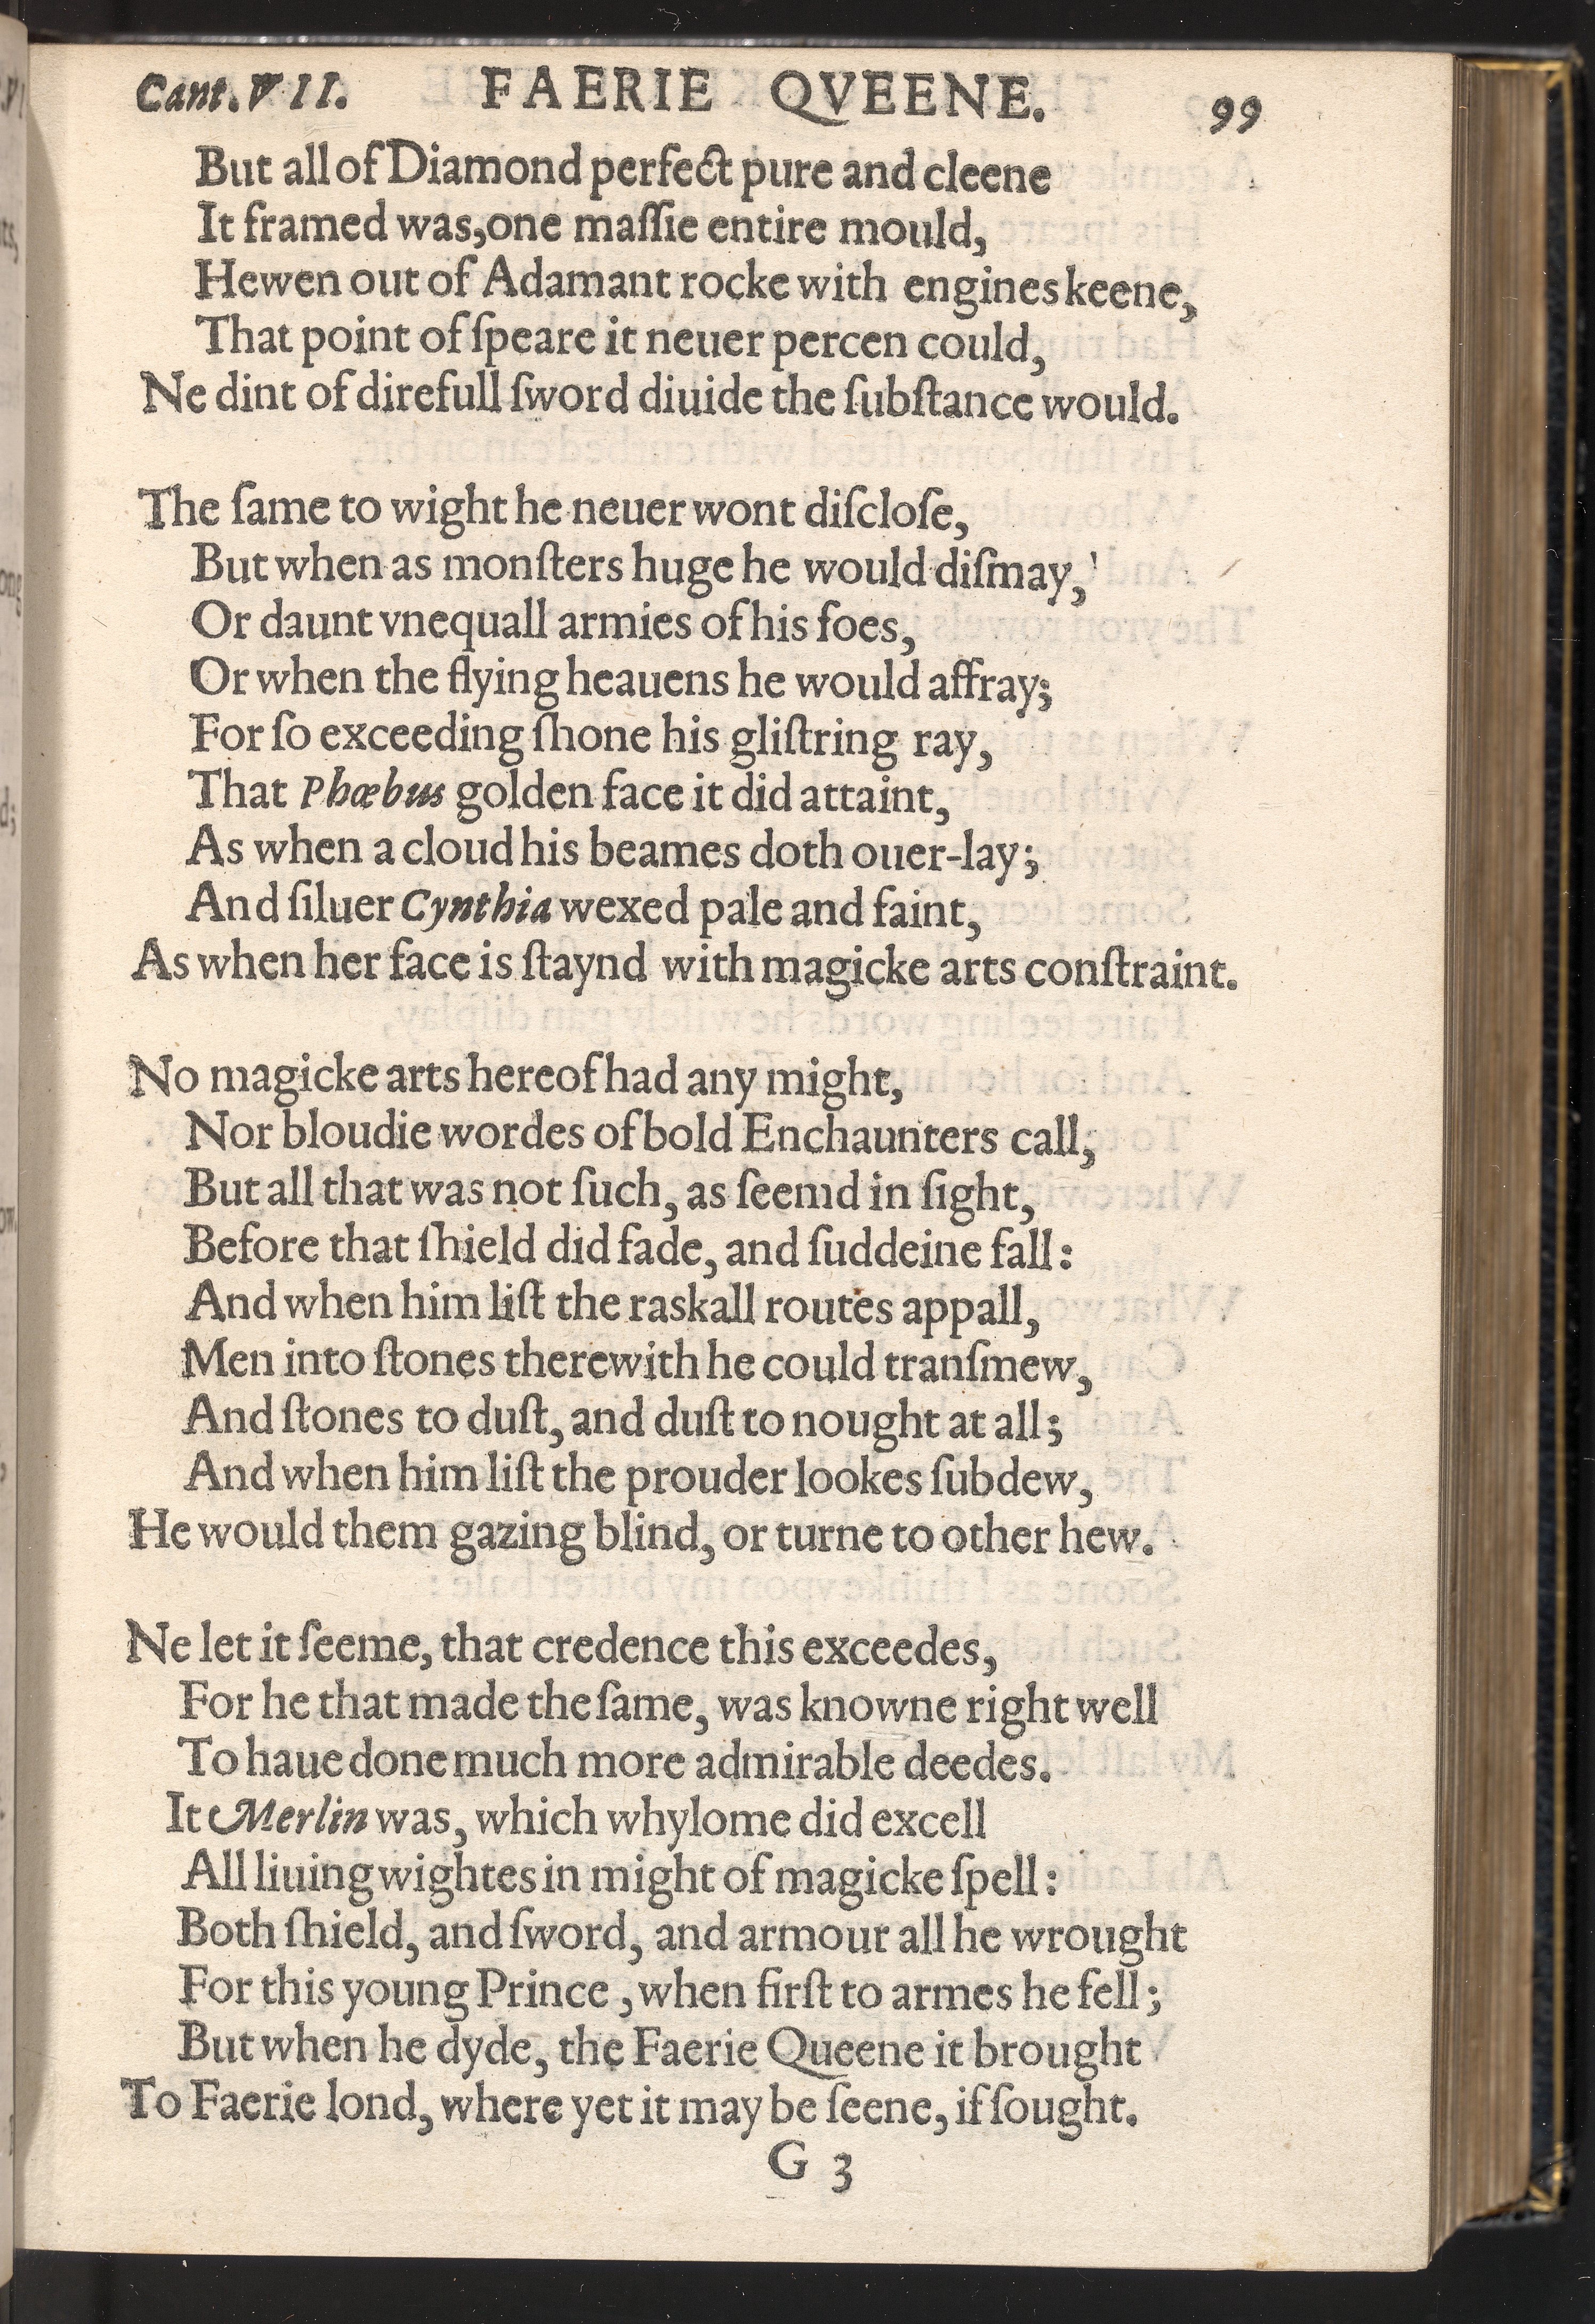 Cant. VII. FAERIE QVEENE. 99
But all of Diamond perfect pure and cleene
It framed was, one maſſie entire mould,
Hewen out of Adamant rocke with engines keene,
That point of ſpeare it neuer percen could,
Ne dint of direfull ſword diuide the ſubſtance would.
The ſame to wight he neuer wont diſcloſe,
But when as monſters huge he would diſmay,
Or daunt vnequall armies of his foes,
Or when the flying heauens he would affray;
For ſo exceeding ſhone his gliſtring ray,
That Phœbus golden face it did attaint,
As when a cloud his beames doth ouer-lay;
And ſiluer Cynthia wexed pale and faint,
As when her face is ſtaynd with magicke arts conſtraint.
No magicke arts hereof had any might,
Nor bloudie wordes of bold Enchaunters call,
But all that was not ſuch, as ſeemd in ſight,
Before that ſhield did fade, and ſuddeine fall:
And when him liſt the raskall routes appall,
Men into ſtones therewith he could tranſmew,
And ſtones to duſt, and duſt to nought at all;
And when him liſt the prouder lookes ſubdew,
He would them gazing blind, or turne to other hew.
Ne let it ſeeme, that credence this exceedes,
For he that made the ſame, was knowne right well
To haue done much more admirable deedes.
It Merlin was, which whylome did excell
All liuing wightes in might of magicke ſpell:
Both ſhield, and ſword, and armour all he wrought
For this young Prince, when firſt to armes he fell;
But when he dyde, the Faerie Queene it brought
To Faerie lond, where yet it may be ſeene, if ſought.
G 3